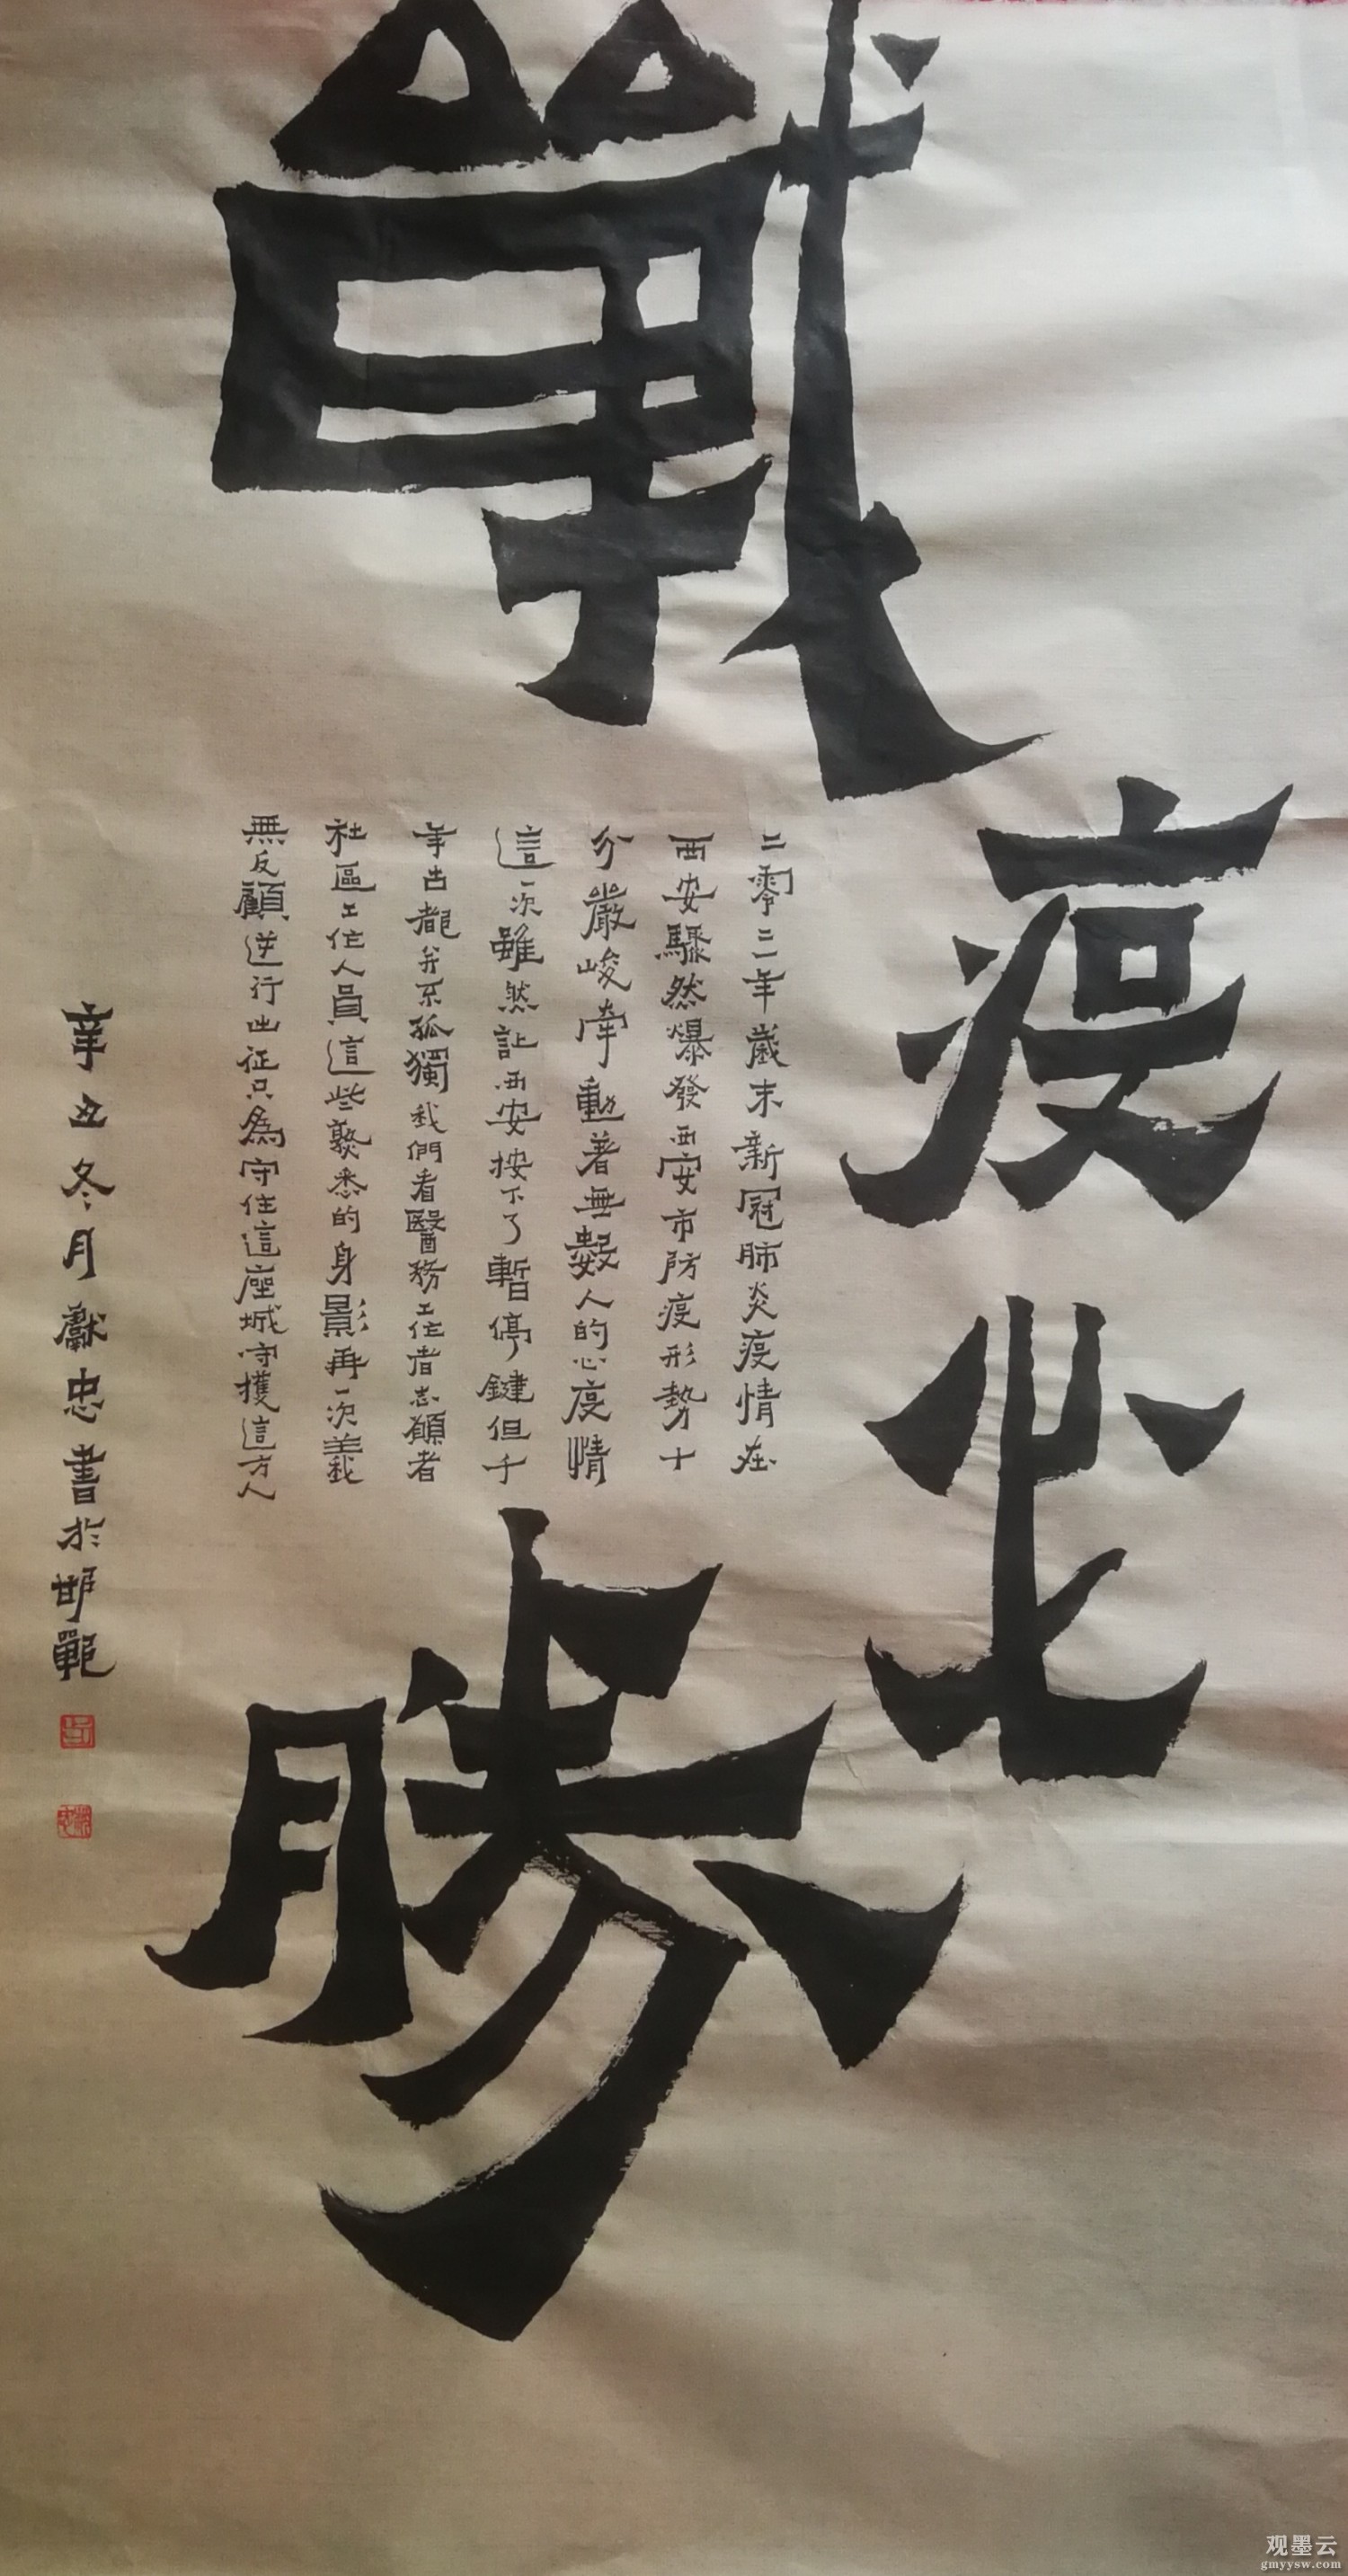 戰疫必勝
二零二一年歲末新冠肺炎疫情在
西安驟然爆發西安市防疫形勢十
分嚴峻牽動著無數人的心疫情
這一次雖然让西安按下了暫停鍵但千
年古都并不孤獨我們看醫務工作者志願者
社區工作人員這些熟悉的身影再一次義
無反顧逆行出征只為守住這座城守擭這方人
辛丑冬月獻忠書於邯鄲
观墨云
gmyysw.com